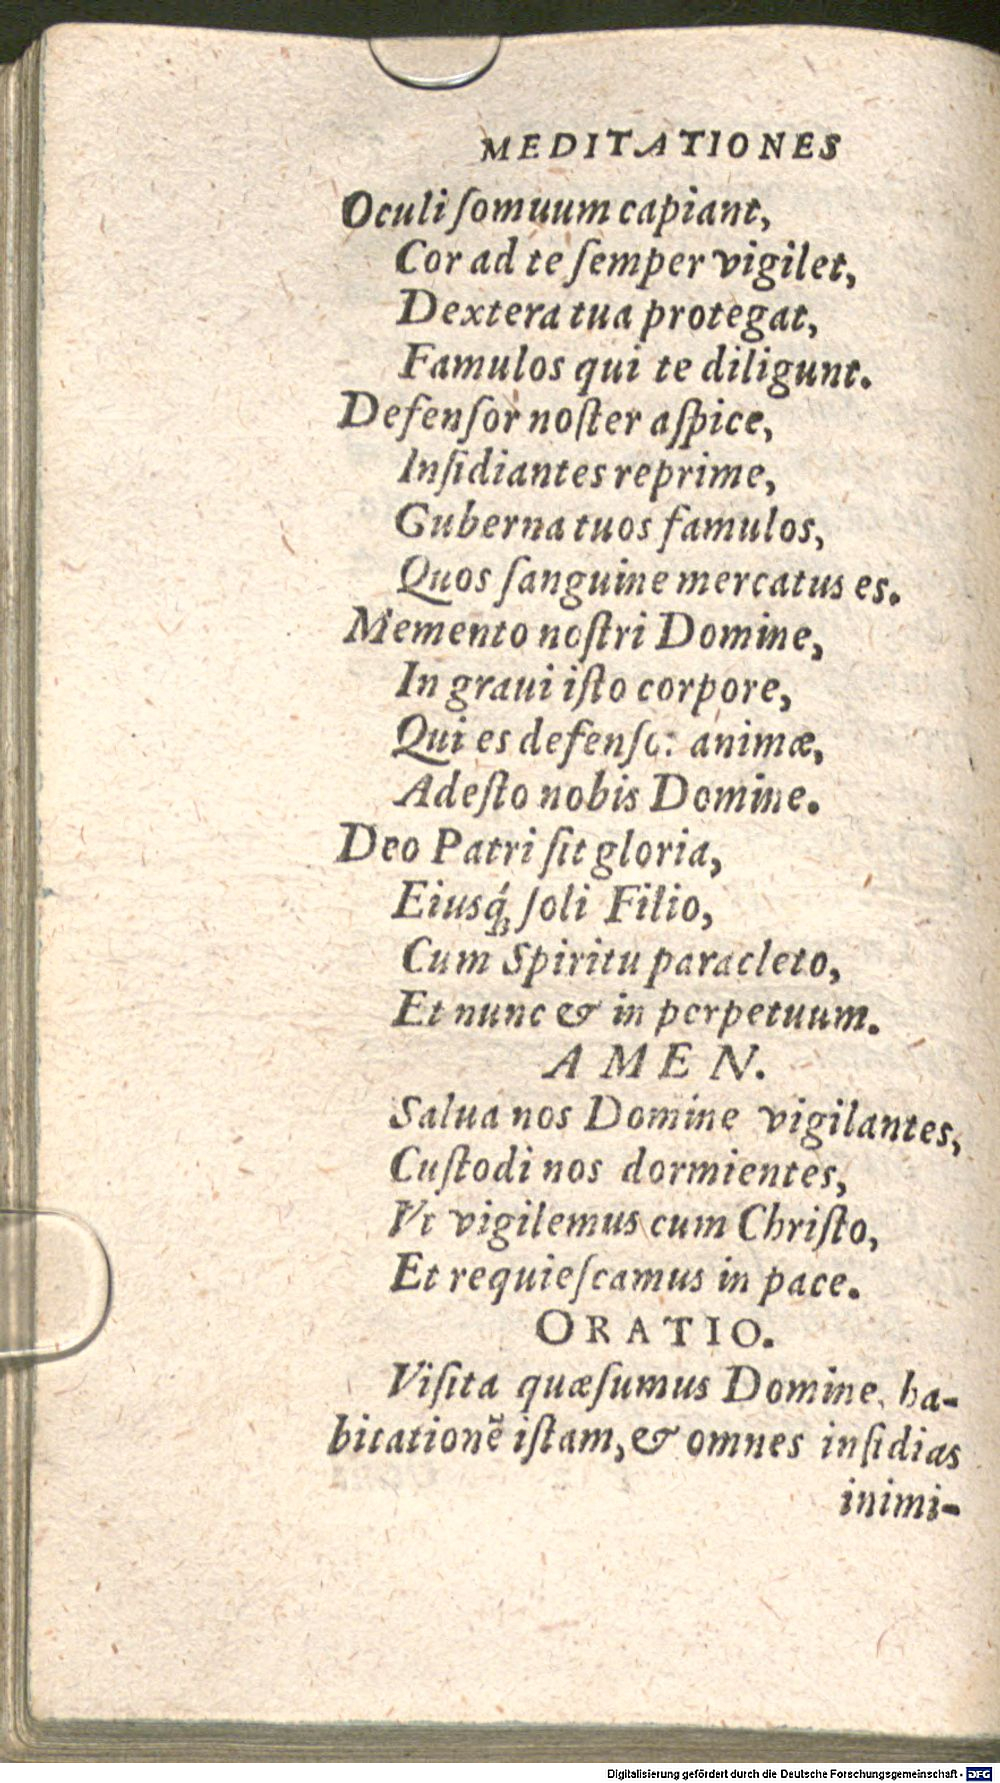 MEDITATIONES
Oculi ſomuum capiant,
Cor ad te ſemper vigilet,
Dextera tua protegat,
Famulos qui te diligunt.
Defenſor noſter aſpice,
Inſidiantes reprime,
Guberna tuos famulos,
Quos ſanguine mercatus es.
Memento noſtri Domine,
In graui iſto corpore,
Qui es defenſor animæ,
Adeſto nobis Domine.
Deo Patri ſit gloria,
Eiusq́ꝫ ſoli Filio,
Cum Spiritu paracleto,
Et nunc & in perpetuum.
AMEN.
Salua nos Domine vigilantes,
Cuſtodi nos dormientes,
Vt vigilemus cum Chriſto,
Et requieſcamus in pace.
ORATIO.
Viſita quæſumus Domine, ha-
bitationē iſtam, & omnes inſidias
inimi-
Digitalisierung gefördert durch die Deutsche Forschungsgemeinschaft - DFG